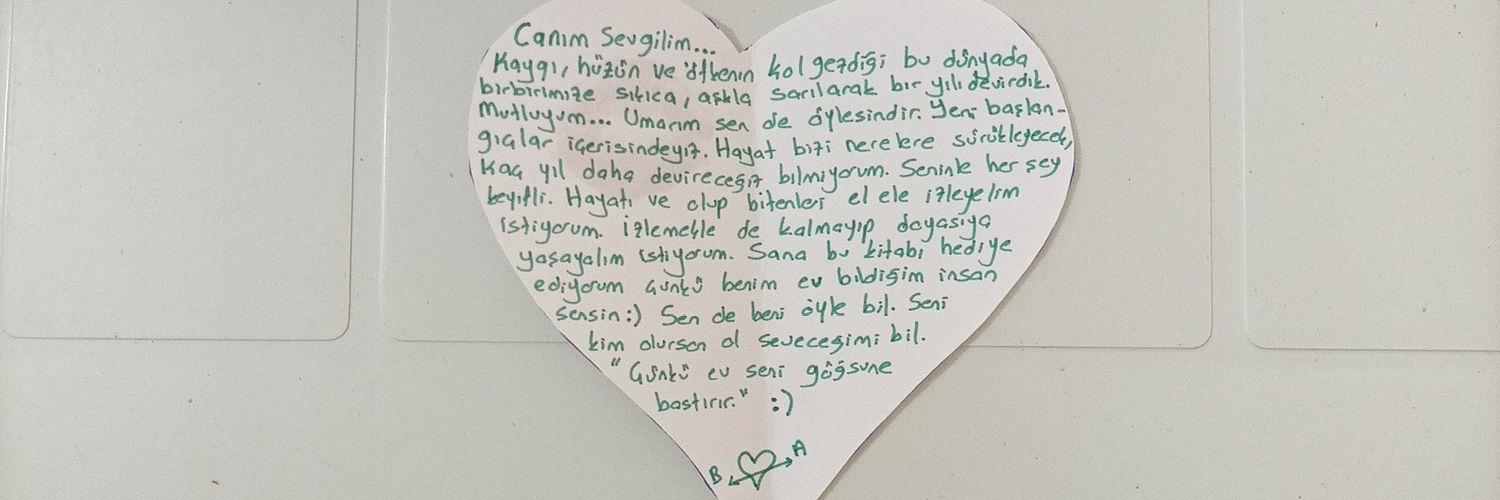 Canım Sevgilim...
Kaygı, hüzün ve öfkenin kol gezdiği bu dünyada
birbirimize sıkıca, aşkla sarılarak bir yılı devirdik.
Mutluyum... Umarım sen de öylesindir. Yeni başlan-
gıçlar içerisindeyiz. Hayat bizi nerelere sürükleyecek,
kaç yıl daha devireceğiz bilmiyorum. Seninle her şey
keyifli. Hayatı ve olup bitenleri el ele izleyelim
istiyorum. İzlemekle de kalmayıp doyasıya
yaşayalım istiyorum. Sana bu kitabı hediye
ediyorum çünkü benim ev bildiğim insan
sensin:) Sen de beni öyle bil. Seni
kim olursan ol seveceğimi bil.
"Çünkü ev seni göğsüne
bastırır." :)
B A